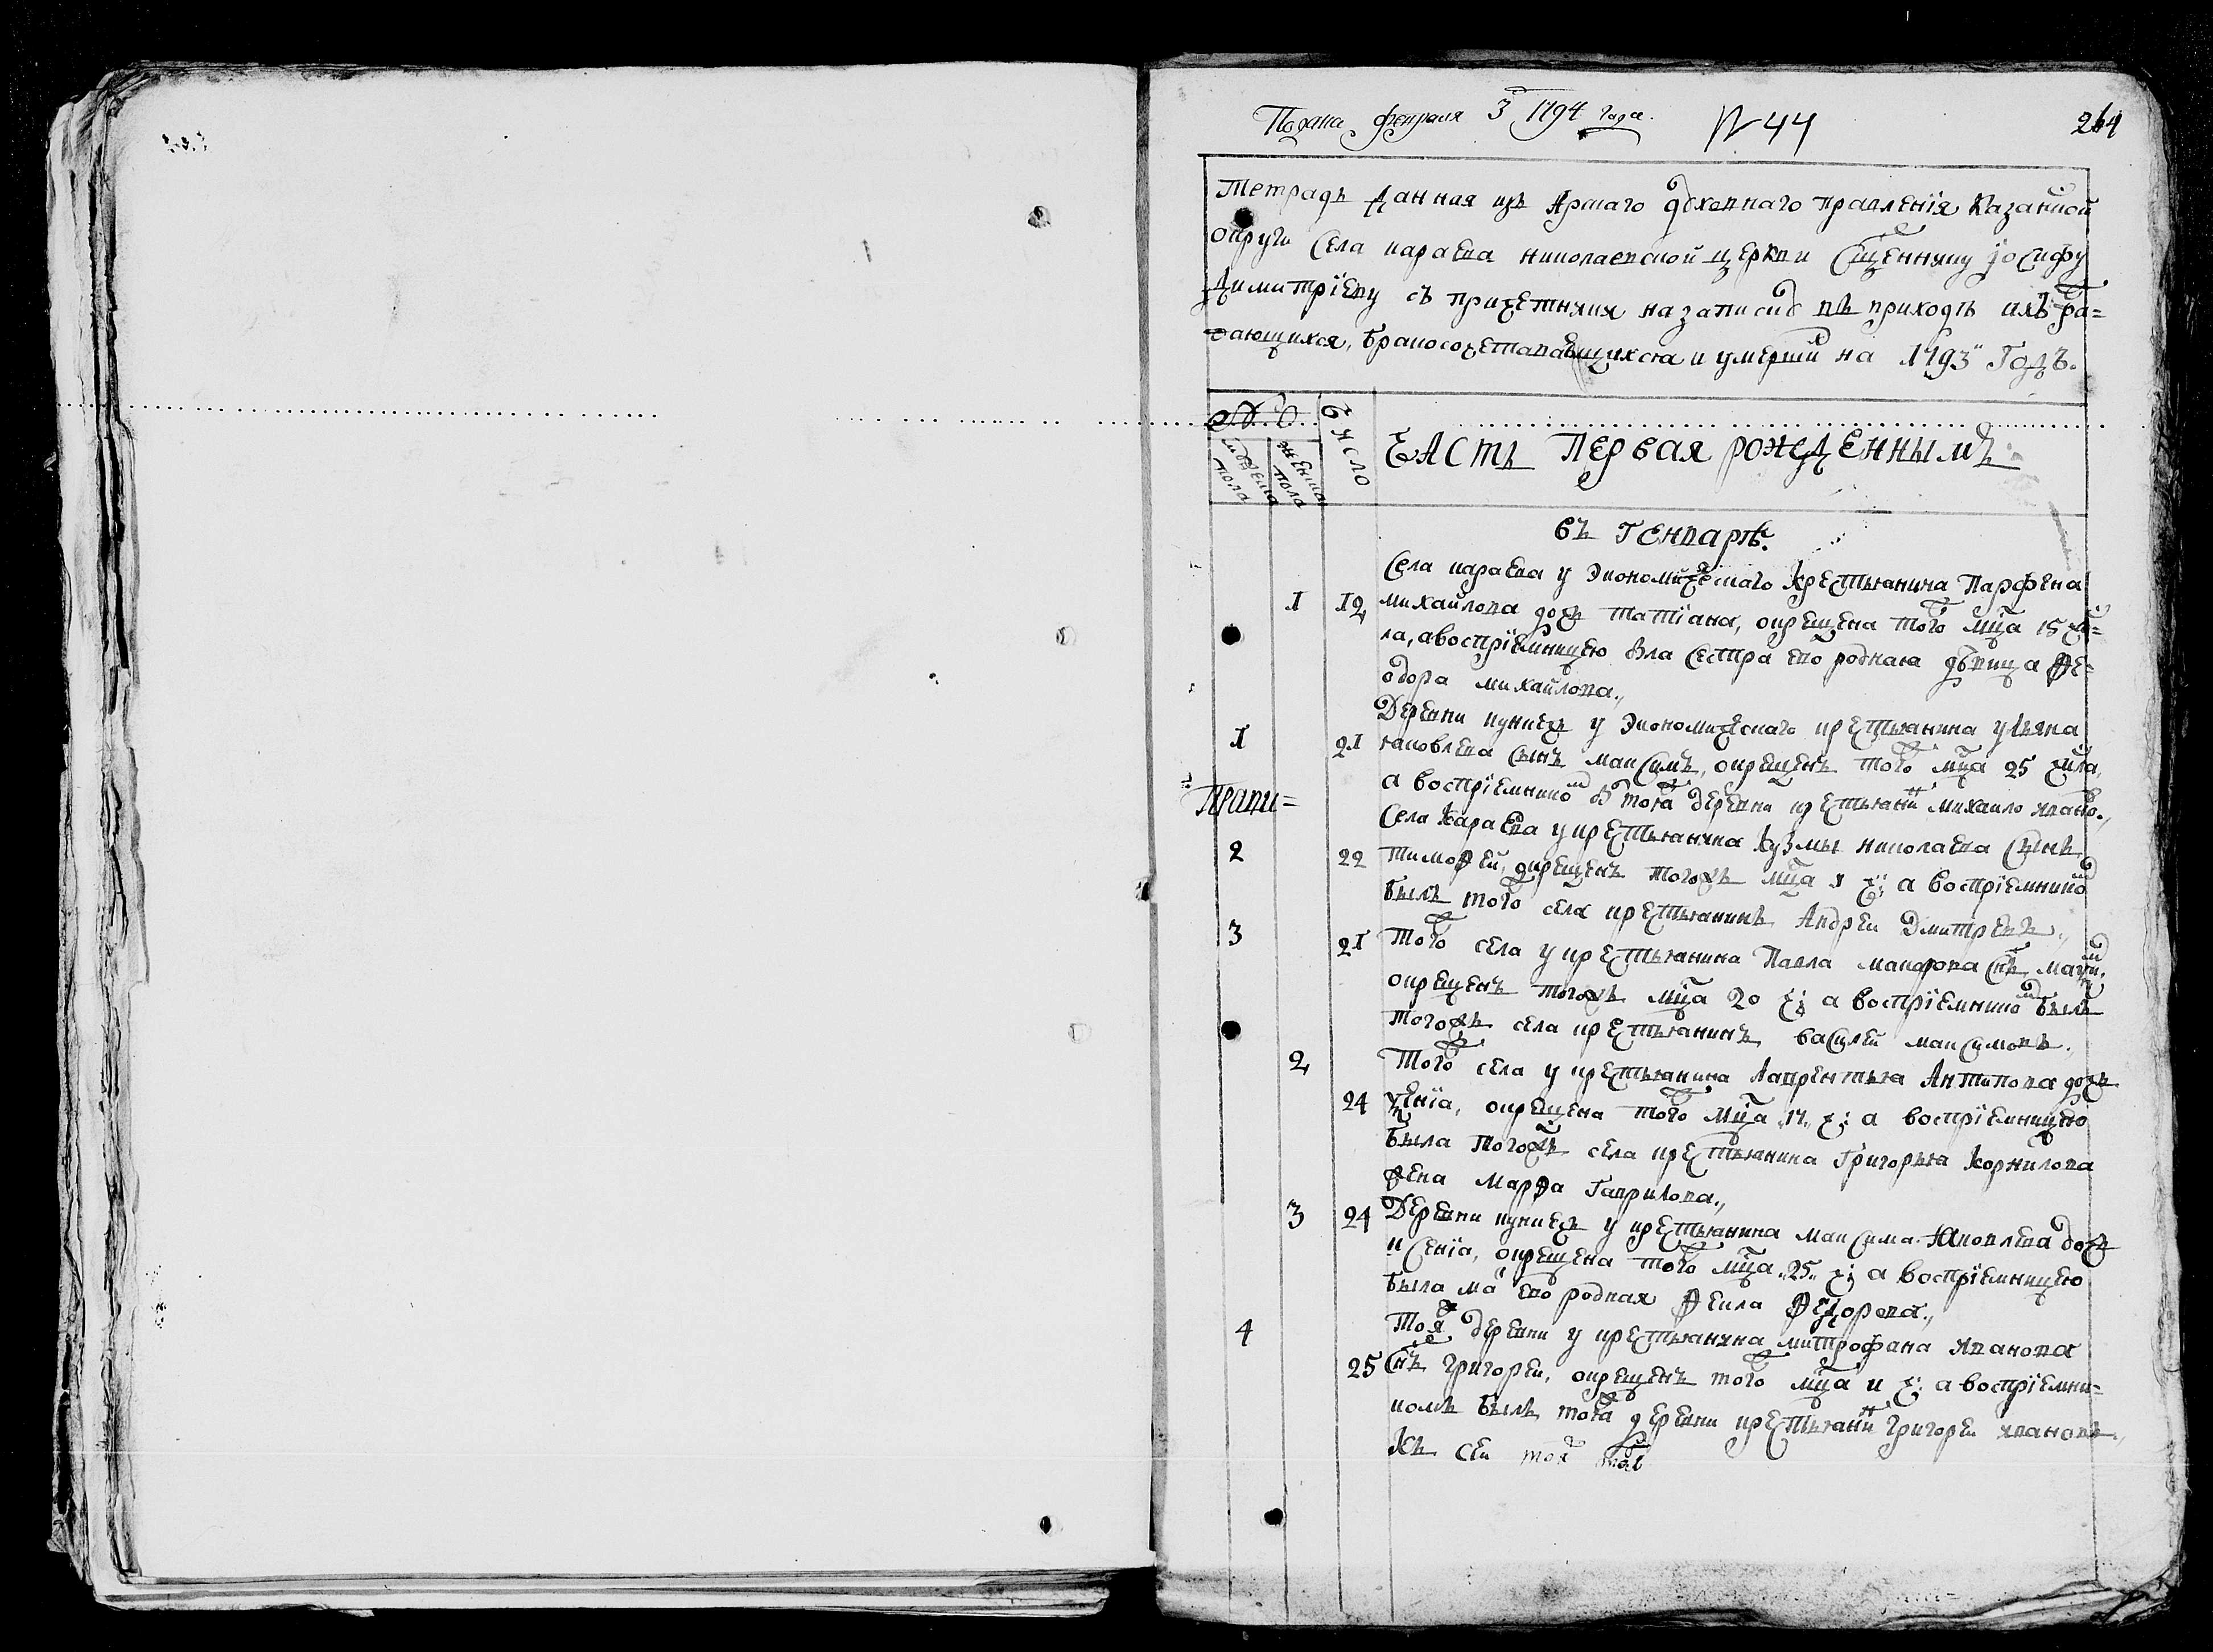 Подана февраля 3 1794 года. № 44 264
Тетрадь данная изъ Арскаго духовнаго правленїя Казанской
округи села караева николаевской церкви Сщеннику Їосифу
Димитрїеву съ причетники на записку въ приходѣ ихъ ра=
дающихся, бракосочетававшихся и умершихъ на 1793 Годъ.
Число
мужеска пола
женска пола
Часть Первая рожденнымъ
въ Генварѣ.
Села караева у Экономическаго Крестьянина Парфена
1 12 михайлова дочь Татїана, окрещена того мца 15 чи=
ла, а воспрїемницею была сестра ево родная дѣвица Ѳе=
одора михайлова.,
Деревни кунчей у Экономическаго крестьянина ульяна
1 21 яковлева сынъ максимъ, окрещенъ того мца 25 числа,
а воспрїемникомъ б тоя деревни крестьянинъ михаило ивановъ.,
Прапи=
Села Караева у крестьянина Кузмы николаева сынъ
2 22 тимоѳей, окрещенъ тогожъ мца я чи а воспрїемникомъ
былъ того села крестьянинъ Андреи Дмитревъ.,
3 21 Того села у крестьянина Павла макарова снъ
окрещенъ тогожъ мца 20 чи а воспрїемникомъ былъ
тогожъ села крестьянинъ василей максимовъ.,
2 Того села у крестьянина Лаврентья Антипова дочь
24 окрещена того мца 17 чи а воспрїемницею
была тогожъ села крестьянина Григорья Корнилова
жена Марѳа Гаврилова.,
3 24 Деревни кунчей у крестьянина максима Яковлева дочь
ксенїа, окрещена того мца 25 чи а воспрїемницею
была ма ево родная Ѳекла Ѳедорова.,
4 Тоя деревни у крестьянина митрофана иванова
25 снъ григореи, окрещенъ того мца и чи а воспрїемни=
комъ былъ тоя деревни крестьянинъ григореи ивановъ.,
Къ сеи тоя